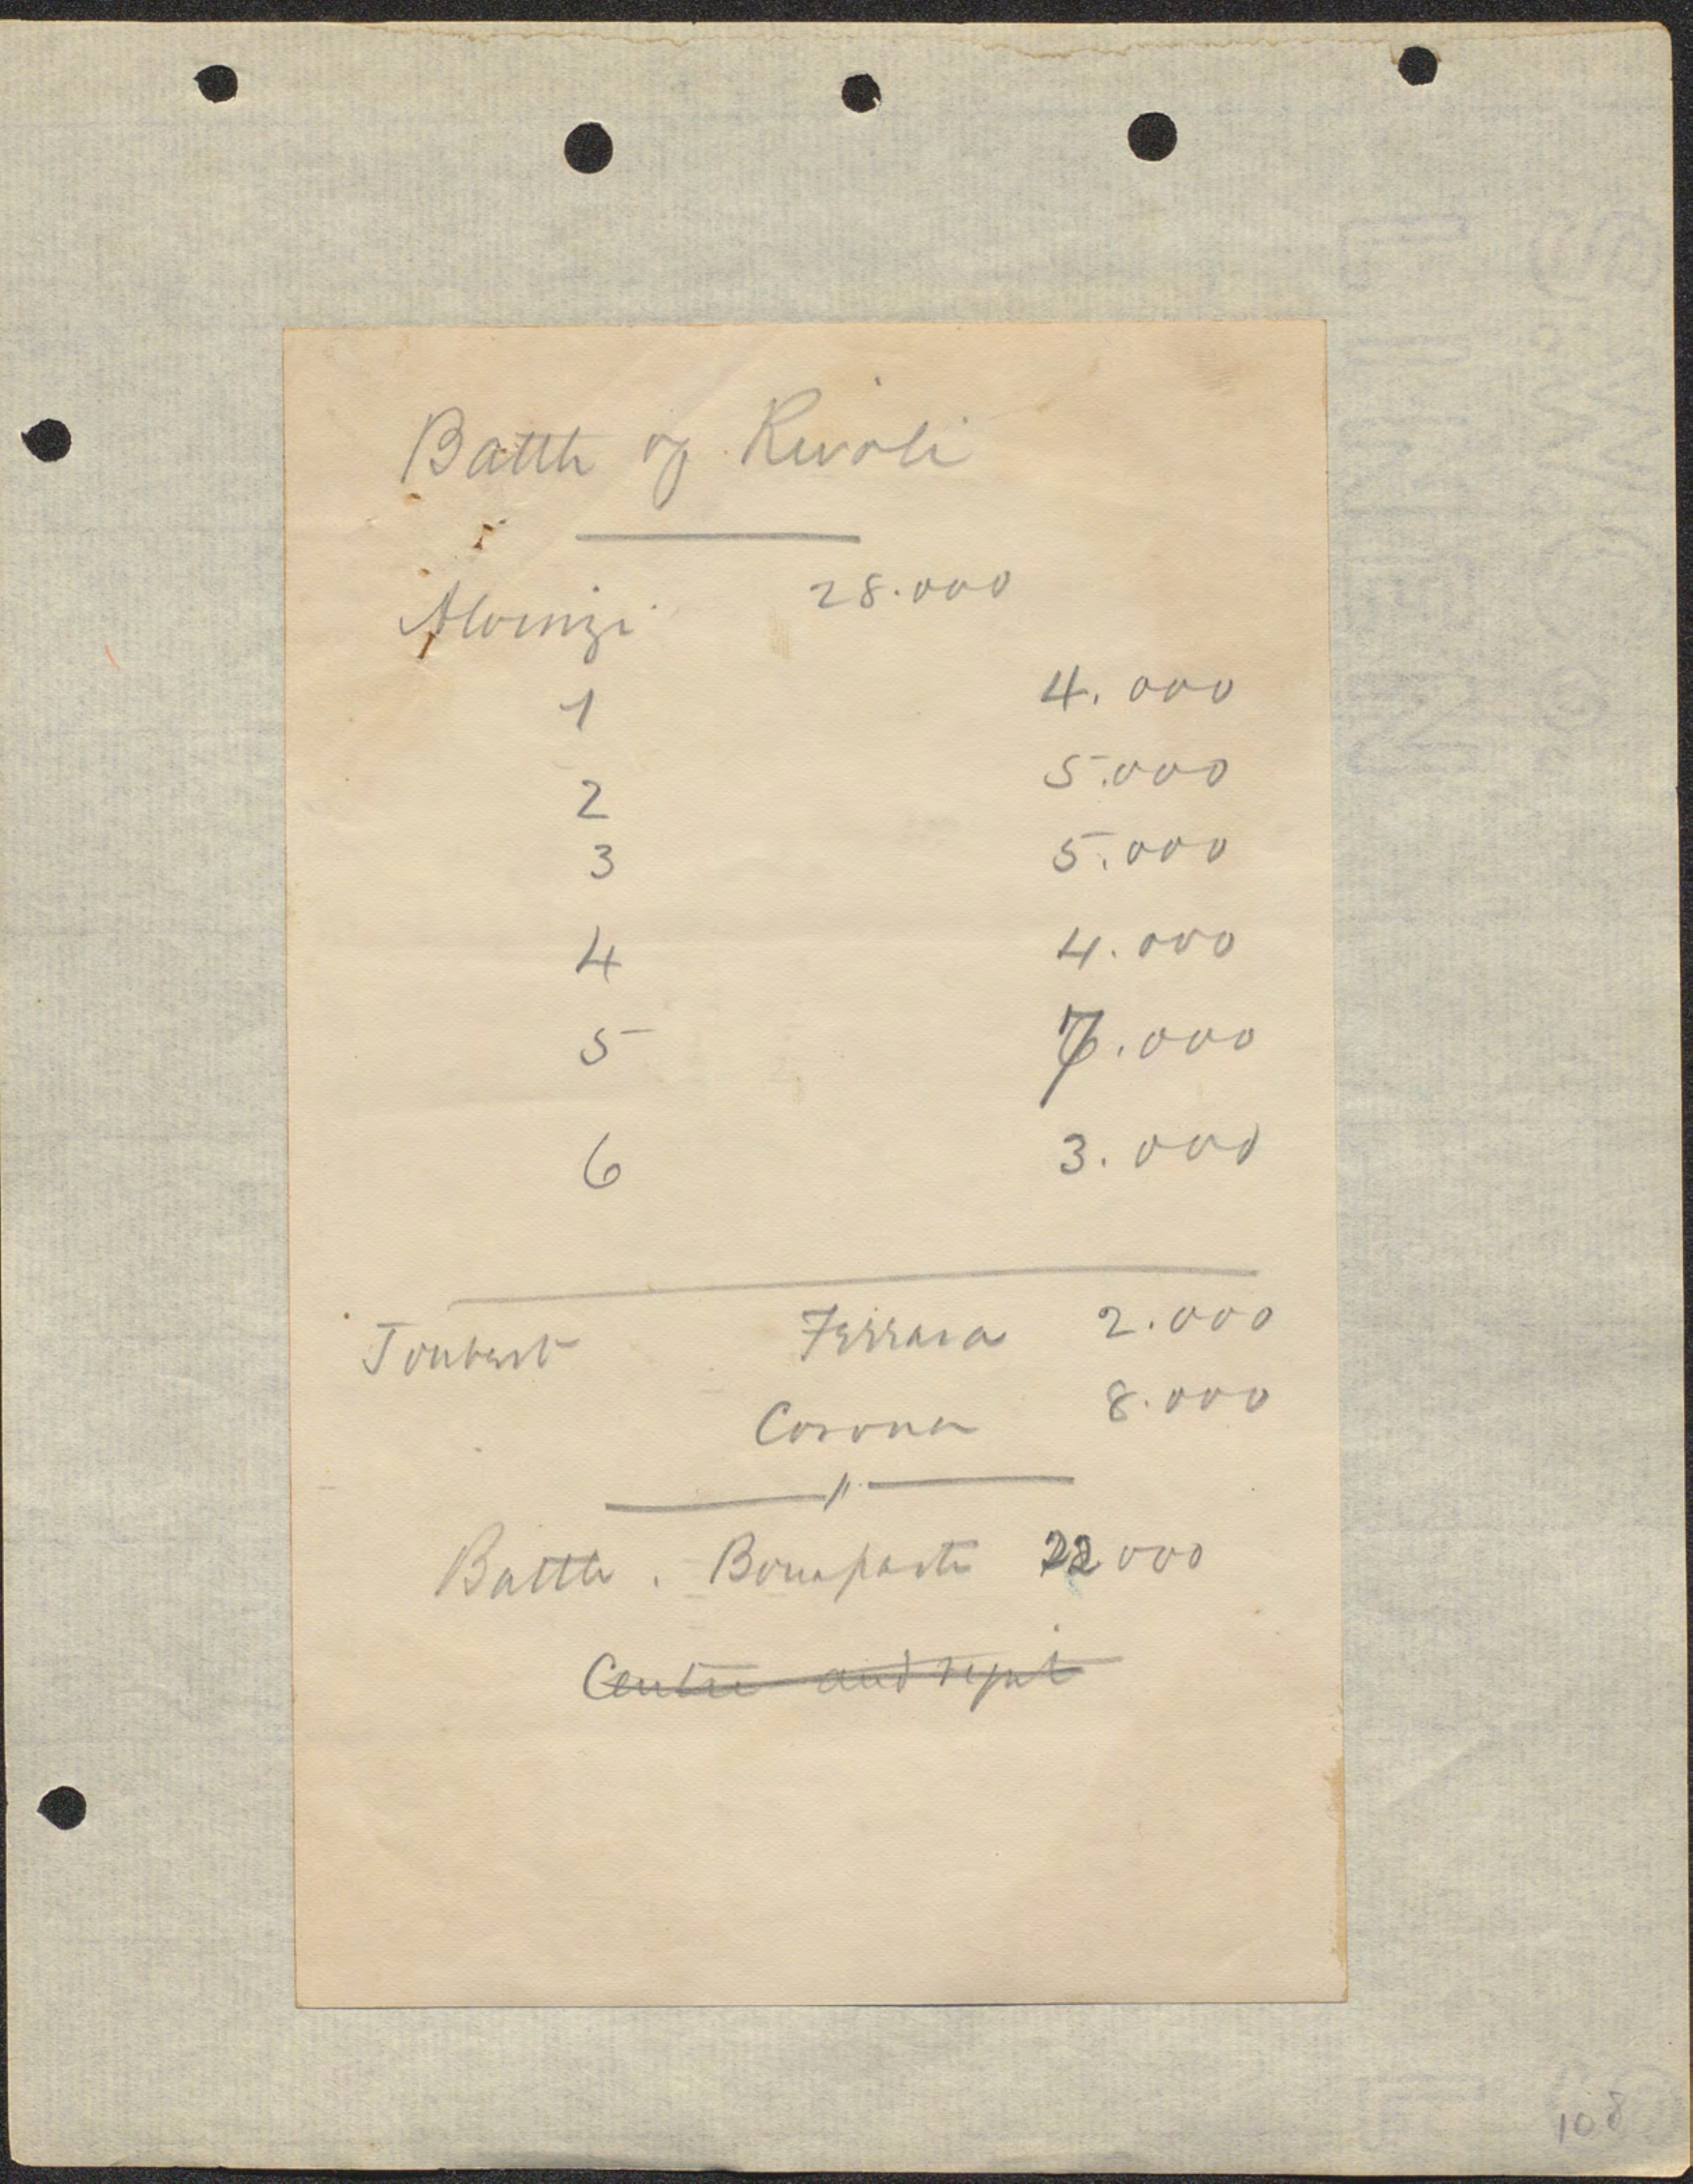 Battle of Rivoli
Alvinzi 28.000
1 4.000
2 5.000
3 5.000
4 4.000
5 7.000
6 3.000
Joubert Ferrara 2.000
Corona 8.000
Battle. Bonaparte 22000
Centre and right
108